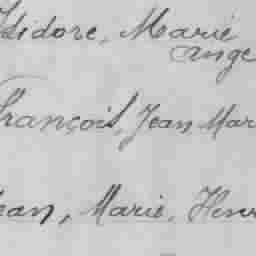 Isidore, Marie
Ange
François, Jean Mar
ean, Marie, Henr